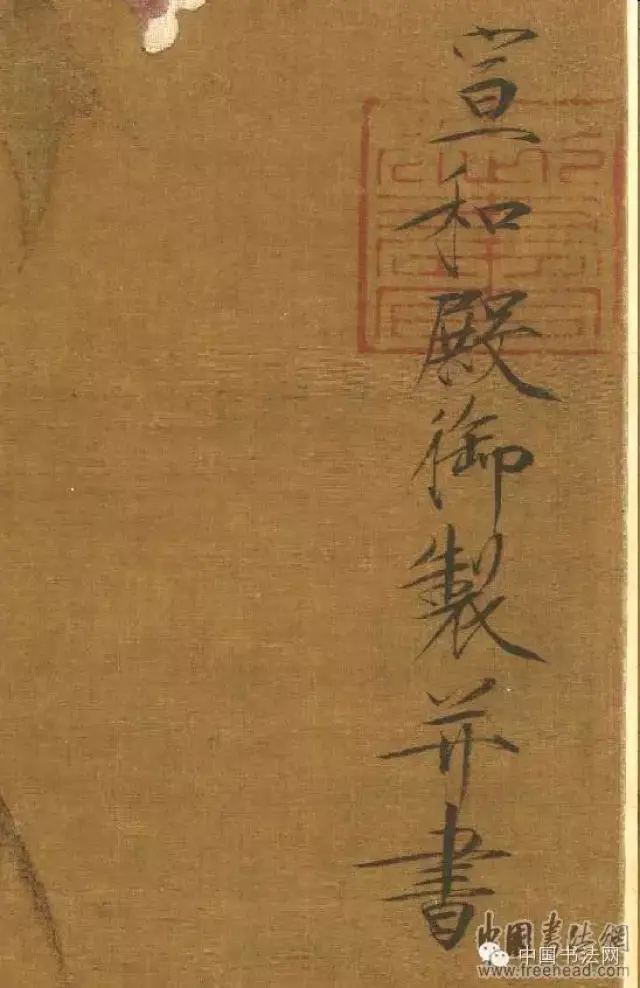 宣和殿御製并書
中國書法網
中国书法网
www.freehead.com